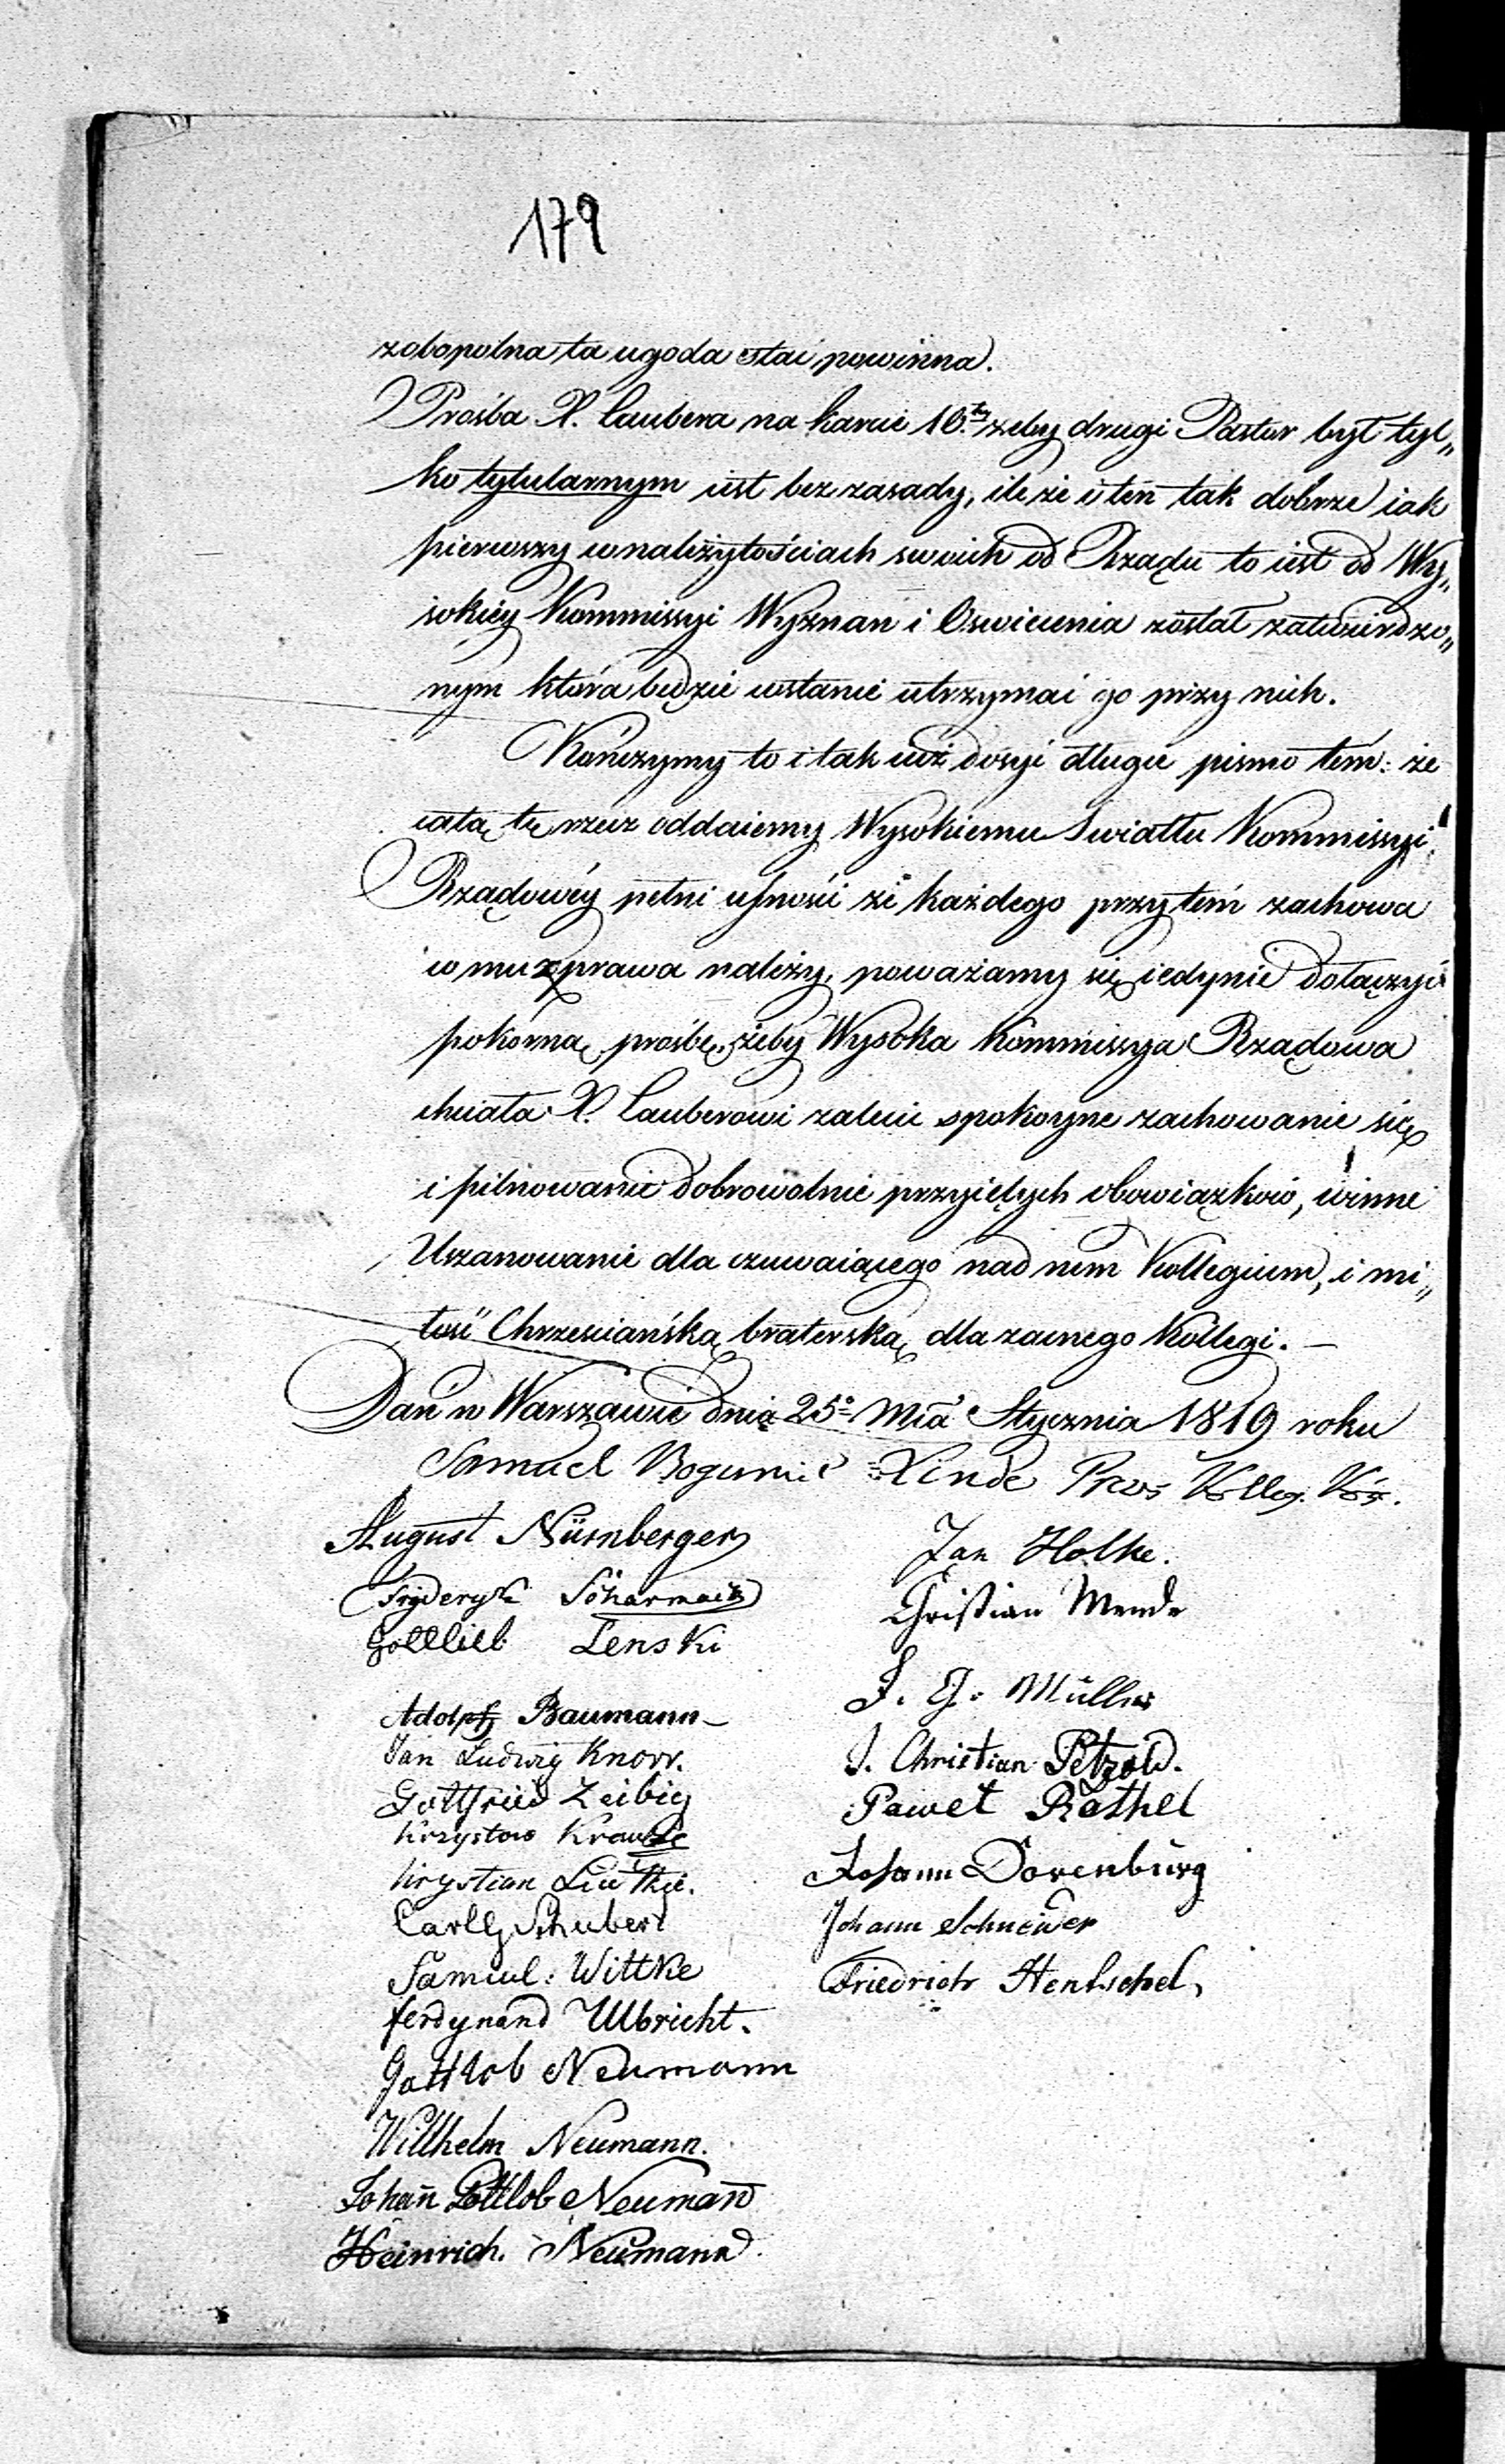 179
zobopolna ta ugoda stać powinna.
Prośba X. Laubera na karcie 10.tey żeby drugi Pastor był tyl„
ko tytularnym iest bez zasady, ile że i ten tak dobrze iak
pierwszy w należytościach swoich od Rządu to iest od Wy„
sokiey Kommissyi Wyznan i Oswiecenia został zatwierdzo„
nym która będzie wstanie utrzymać go przy nich.
Kończymy to i tak iuż dosyć długie pismo tém: że
całą tę rzecz oddaiemy Wysokiemu Swiatłu Kommissyi
Rządowéy pełni ufności że każdego przytém zachowa
w mu z prawa należy, poważamy się iedynie dołączyć
pokorną prośbę, żeby Wysoka Kommissya Rządowa
chciała X. Lauberowi zalecić spokoyne zachowanie się
i pilnowanie dobrowolnie przyiętych obowiązków, winne
Uszanowanie dla czuwaiącego nad nem Kollegium, i mi„
łość Chrześciańską braterską dla zacnego Kollegi. —
Dań w Warszawie dnia 25º Mca Stycznia 1819 roku
Samuel Bogumił Linde Prez Kolleg. Koś.
August Nürnberger
Jan Holke.
Fryderyk Scharmack
Christian Mende
Gottlieb Lenski
J. G. Müller
Adolph Baumann
J. Christian Petzold.
Jan Ludwig Knorr.
Paweł Rothel
Gottfried Zeibig
Krzystow Krause
Johann Dorenburg
Krystian Lüthge.
Johann Schneider
Carl G Schubert
Friedrich Hentschel
Samuel: Wittke
Ferdynand Ulbricht.
Gottlob Neumann
Willhelm Neumann.
Johann Gottlob Neumann
Heinrich. Neumann